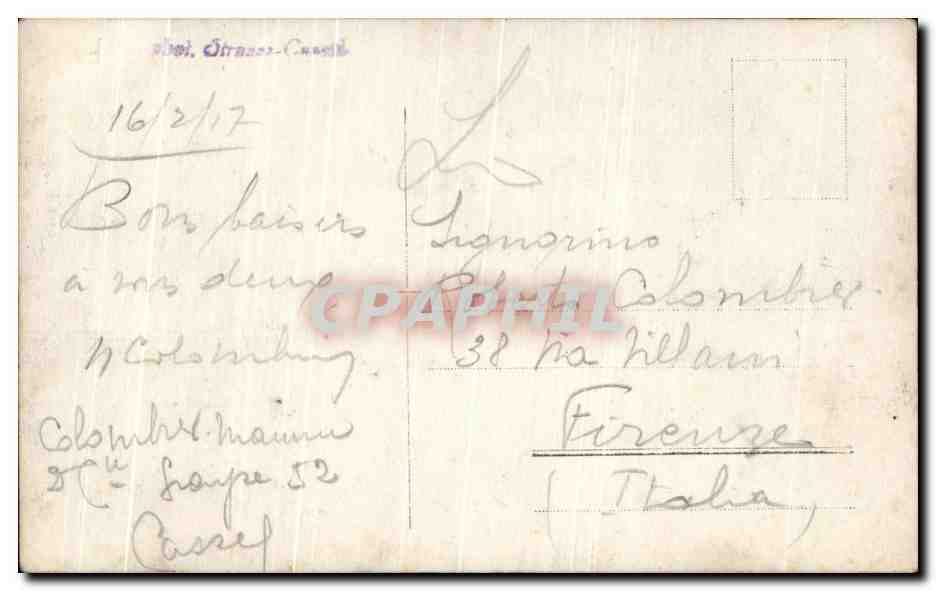 phot. Strauss-Cassel
16/2/17
Bons baisers
à vous deux
Colombier
Colombier Maurice
2e Cie Groupe 52
Cassel
Signorino
Roberto Colombier
38 Via Villani
Firenze
(Italia)
CPAPHIL